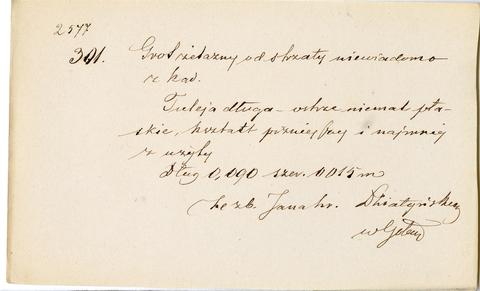 2577
391. Grot żelazny od strzały niewiadomo
z kąd.
Tuleja długa - ostrze niemal pła-
skie, kształt późniejszy i najmniej
z użyty
Dług 0,090 szer. 0015 m
ze zb. Jana hr. Działyńskiego
w Gołuch